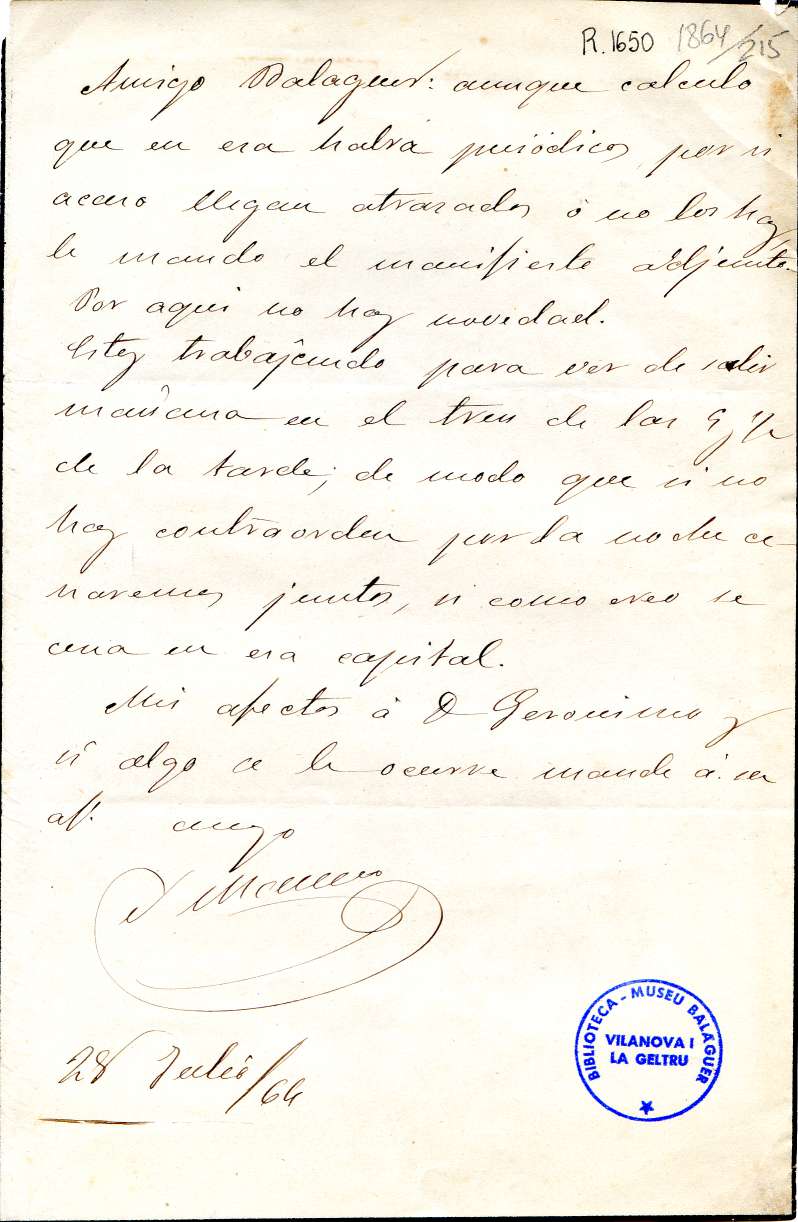 R.1650 1864/215
Amigo Balaguer: aunque calculo
que en esa habrá periódicos, por si
acaso llegan atrazados ó no los hay,
le mando el manifiesto adjunto.
Por aqui no hay novedad.
Estoy trabajando para ver de salir
mañana en el tren de las 5 y ½
de la tarde; de modo que si no
hay contraorden por la noche ce-
naremos juntos, si como creo se
cena en esa capital.
Mis afectos á D Geronimo y
si algo se le ocurre mande á su
af. amigo
28 Julio/64
BIBLIOTECA - MUSEU BALAGUER
VILANOVA I
LA GELTRU